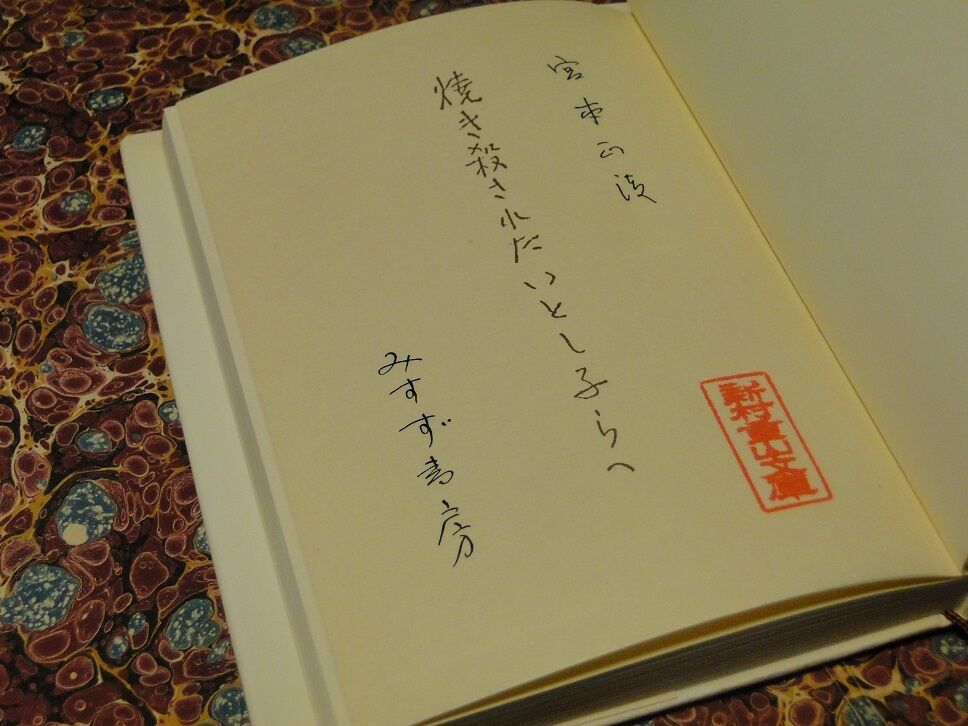 宮本正清
焼き殺されたいとし子らへ
みすず書房
新村重山文庫